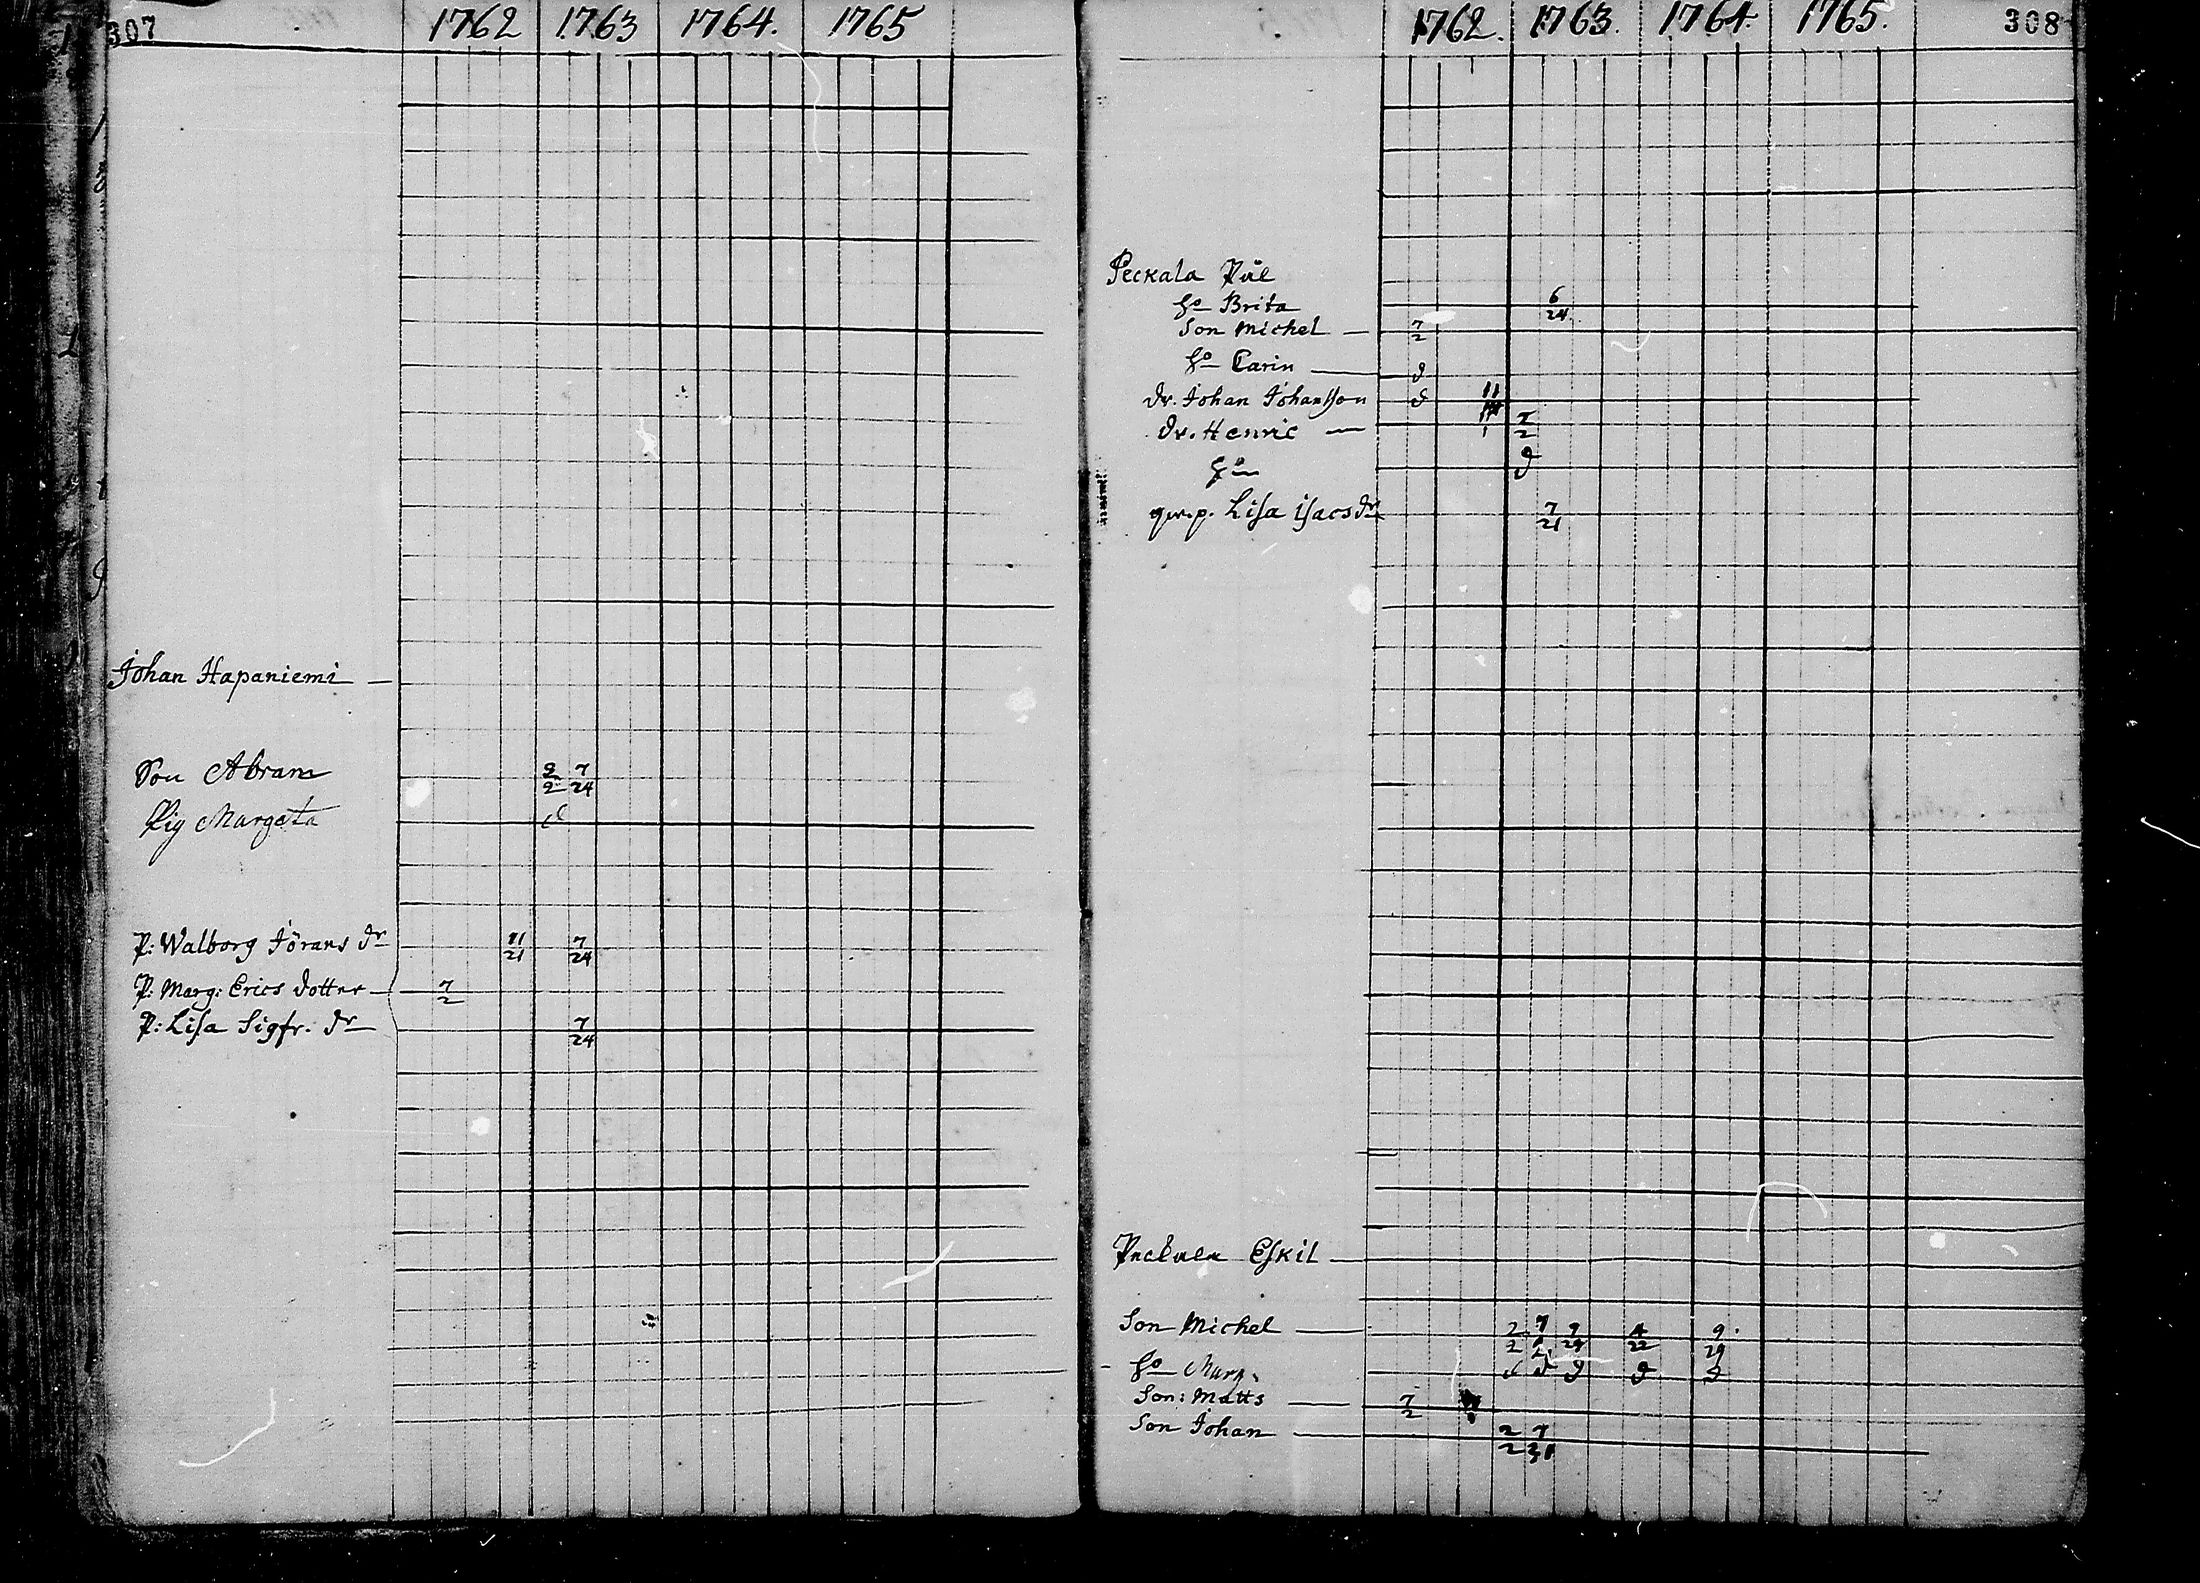 307 1762 1763 1764. 1765
Johan Hapaniemi —
Son Abram 2/2 7/24
Pig Margeta
P: Walborg Jörans dr 11/21 7/24
P: Marg: Erics dotter — 7/2
P: Lisa Sigfr. dr 7/24
1762. 1763. 1764. 1765. 308
Peckala Pål
ho Brita 6/24
Son Michel — 7/2
ho Carin — d
dr. Johan Johansson d 11
dr. Henric — 7/2
hu d
gw. p. Lisa Isacs dr 7/21
Peckala Eskil —
Son Michel — 2/2 9/29 4/22 9/29
ho Marg. d d d d
Son: Matts — 7/2
Son Johan — 2/2